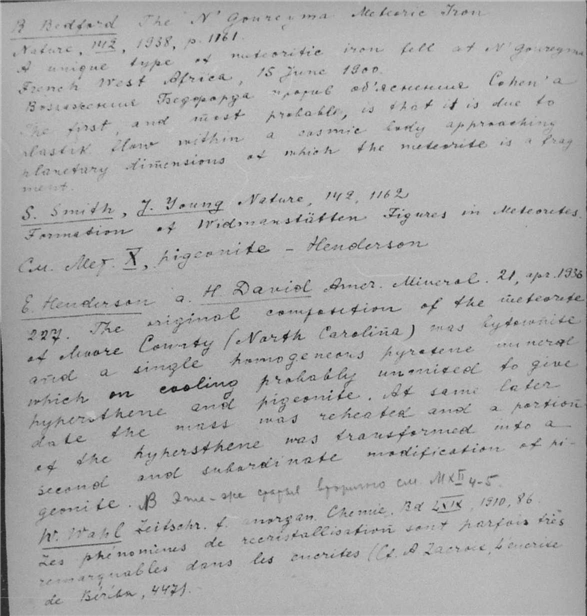 B Bedford The N'Goureyma Meteoric Iron
Nature, 142, 1938, p. 1161.
A unique type of meteoritic iron fell at N'Goureyma
French West Africa, 15 June 1900.
Возражения Бедфорда против об'яснения Cohen'a
The first, and most probable, is that it is due to
plastik flow within a cosmic body approaching
planetary dimensions of which the meteorite is a frag
ment.
S. Smith, J. Young Nature, 142, 1162
Formation of Widmanstätten Figures in Meteorites.
См. Мет. X, pigeonite – Henderson
E. Henderson a. H. David Amer. Mineral. 21, apr. 1936
227. The original composition of the meteorite
of Moore County (North Carolina) was bytowhite
and a single homogeneous pyroxene mineral
which on cooling probably unmixed to give
hypersthene and pigeonite. At same later
date the mass was reheated and a portion
of the hypersthene was transformed into a
second and subordinate modification of pi-
geonite. см. MXII 4-5.
W. Wahl Zeitschr. f. anorgan. Chemie, Bd LXIX, 1910, 86
Les phénomines de recristallisation sont parfois très
remarquables dans les eucrites (Cf. A Lacroix, L'eucrite
de Béréba, 447).